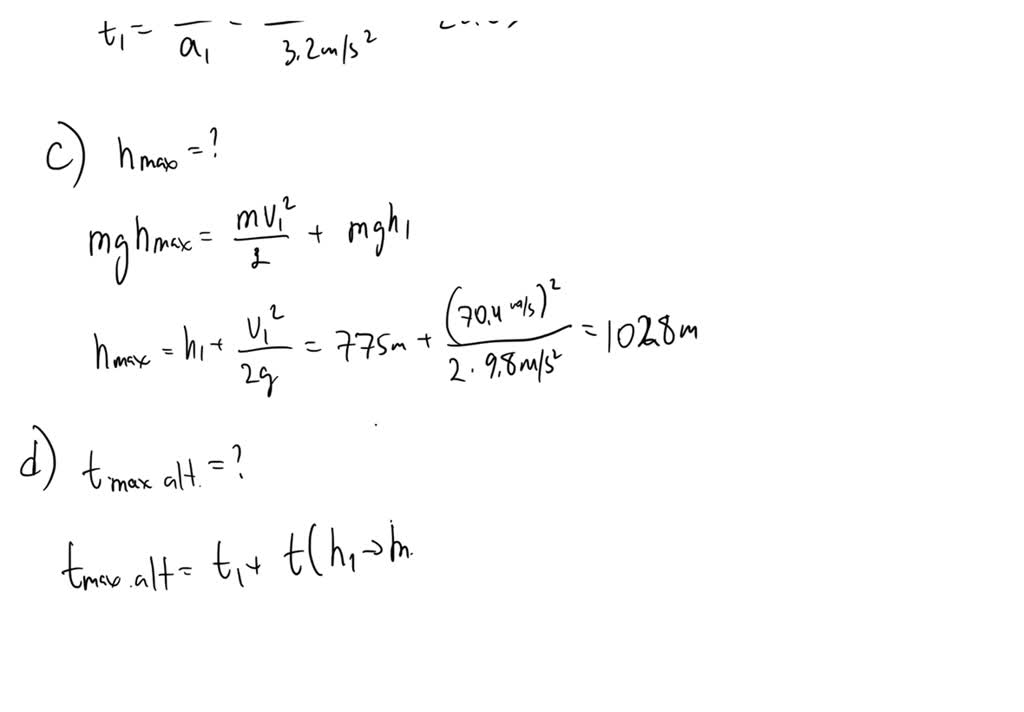 t₁ = / a₁ - / 3.2 m/s²
c) hmax = ?
mghmax = mv₁²/2 + mgh₁
hmax = h₁ + v₁²/2g = 775m + (70,4 m/s)²/2 · 9,8 m/s² = 1028 m
d) tmax alt. = ?
tmax.alt = t₁ + t(h₁→